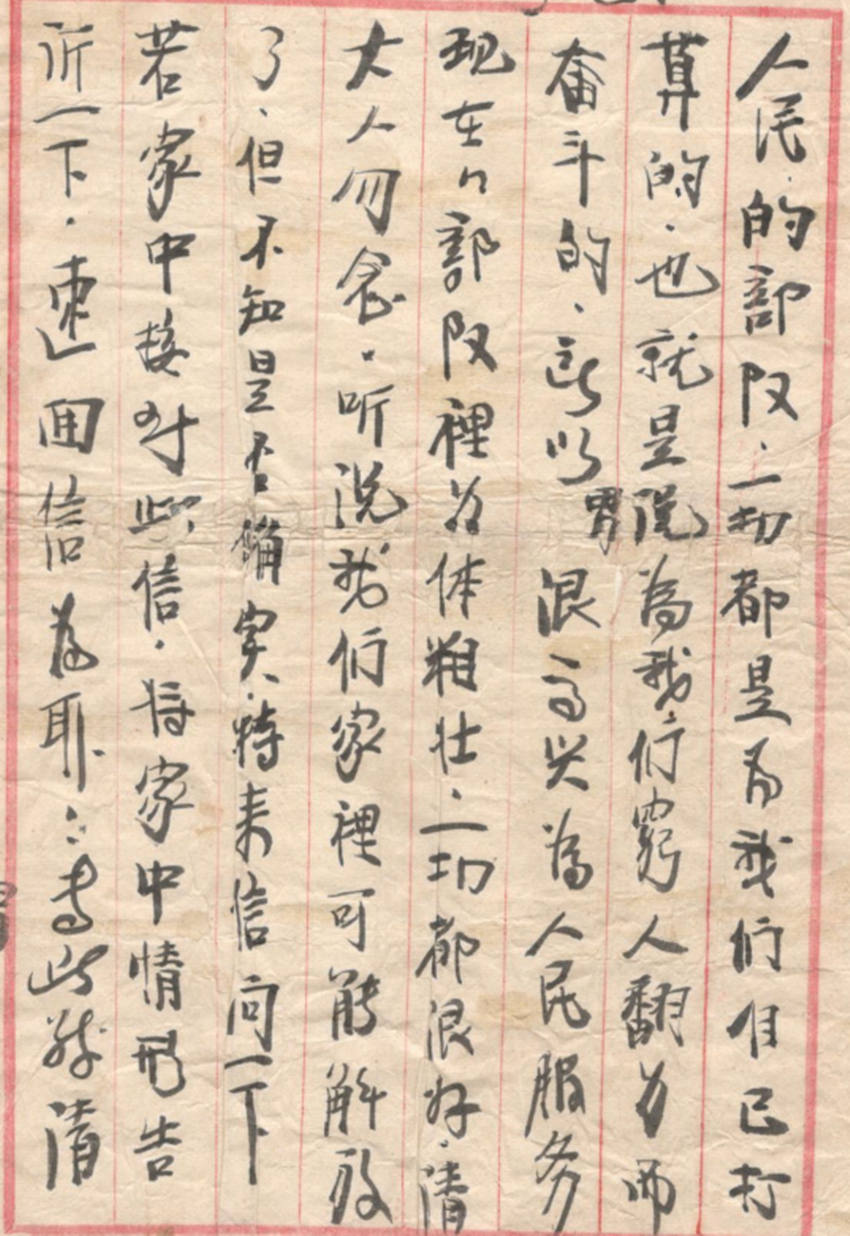 人民的部队、一切都是为我们自己打
算的、也就是说为我们穷人翻身而
奋斗的、所以男很高兴为人民服务
现在部队裡身体粗壮、一切都很好、请
大人勿念。听说我们家裡可能解放
了、但不知是否确实、特来信问一下
若家中接到此信、将家中情形告
诉一下、速回信为盼